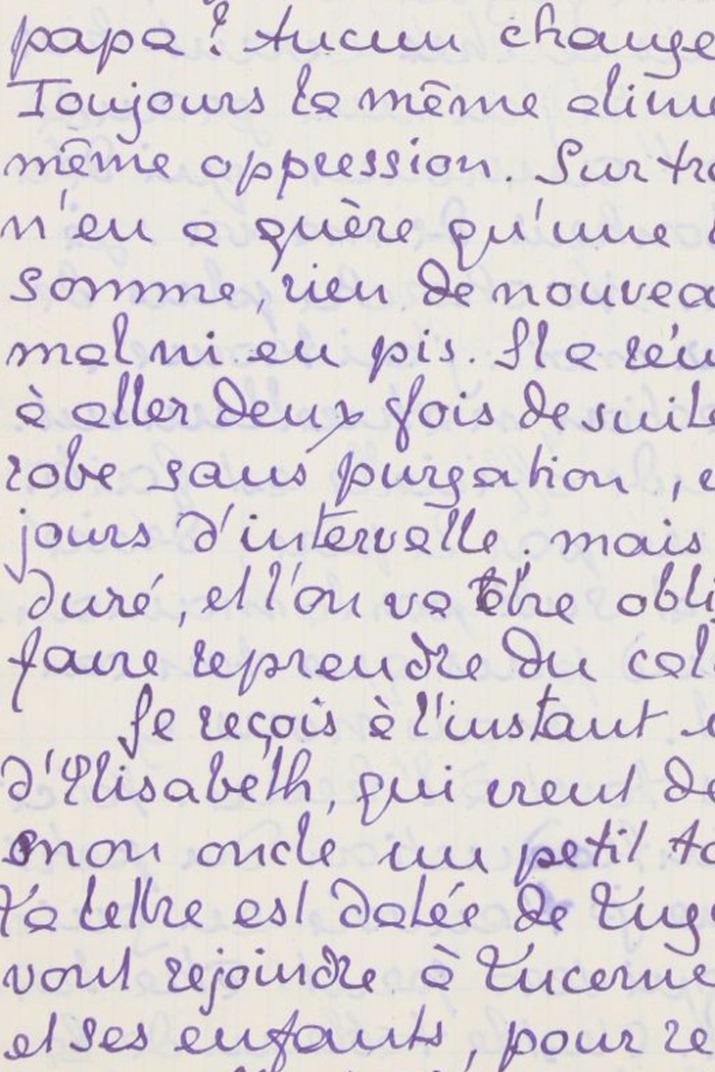 papa? Aucun change
Toujours la même alime
même oppression. Sur tro
n'en a guère qu'une
somme, rien de nouvea
mal ni en pis. Il a réu
à aller deux fois de suite
robe sans purgation, e
jours d'intervalle. mais
duré, et l'on va être obli
faire reprendre du cal
Je reçois à l'instant
d'Elisabeth, qui vient de
mon oncle un petit to
La lettre est datée de Lug
vont rejoindre à Lucerne
et ses enfants, pour re